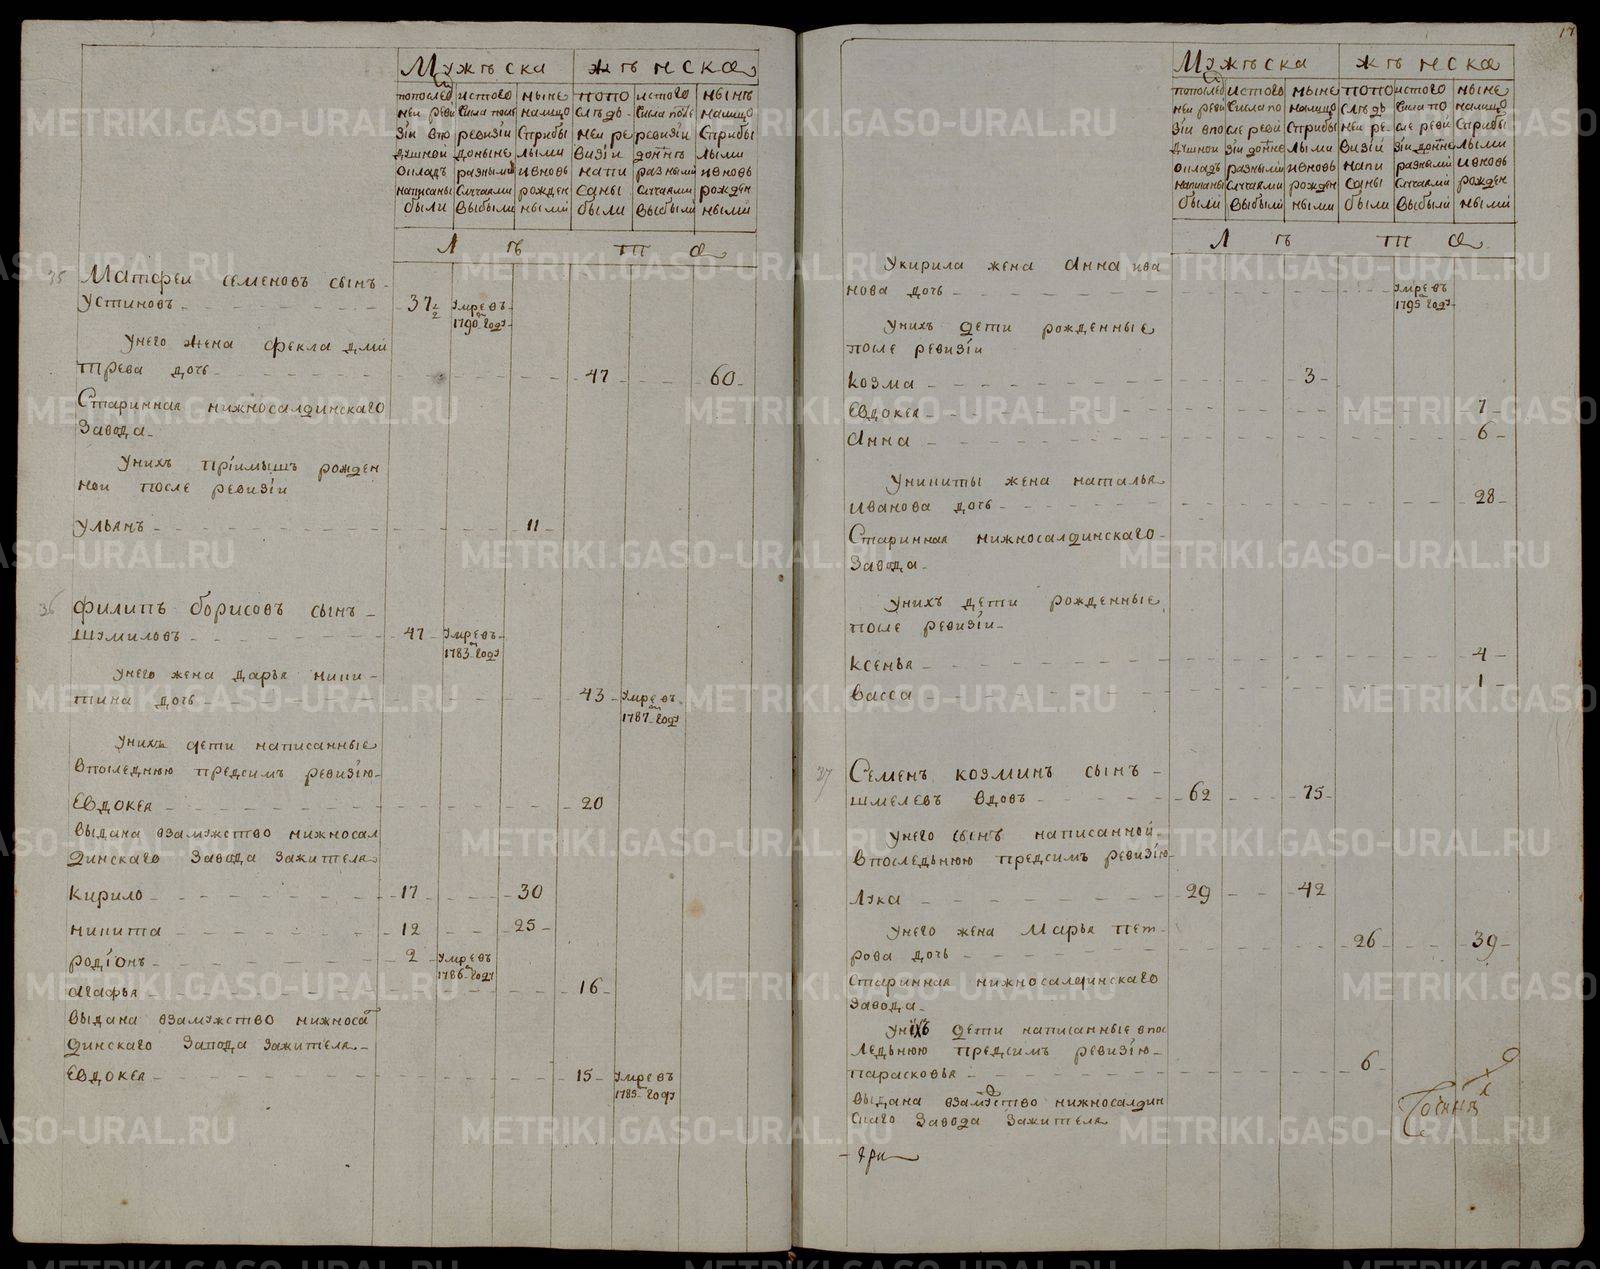 Мужеска женска
попослед ней реви зіи впо душной окладъ написаны были
истого числа после ревизіи доныне разными случаями выбыли
ныне налицо сприбы лыми ивновь рожден ными
попо следь ней ре визіи напи саны были
истого числа после ревизіи донынъ разными случаями выбыли
нынъ налицо сприбы лыми ивновь рожден ными
Л ѣ т а
35 Матфеи семеновъ сынъ
Устиновъ 37½ умре въ 1790 году
Унего жена фекла дми
трева дочь 47 60
Старинная нижносалдинскаго
Завода
Унихъ пріимышъ рожден
ной после ревизіи
Ульянъ 11
36 Филипъ борисовъ сынъ
шумиловъ 47 умре въ 1783 году
Унего жена дарья ники
тина дочь 43 умре въ 1787 году
Унихъ дети написанные
впоследнюю предсимъ ревизію
Евдокея 20
выдана взамужство нижносал
динскаго Завода Зажителя
кирило 17 30
никита 12 25
родіонъ 2 умре въ 1786 году
агафья 16
выдана взамужство нижноса
динскаго Завода Зажителя
Евдокея 15 умре въ 1789 году
17
Мужеска женска
попослед ней реви зіи впо душной окладъ написаны были
истого числа по сле реви зіи донне разными случаями выбыли
ныне налицо сприбы лыми ивновь рожден ными
попо следь ней ре визіи напи саны были
истого числа по сле реви зіи донне разными случаями выбыли
ныне налицо сприбы лыми ивновь рожден ными
Л ѣ т а
Укирила жена Анна ива
нова дочь умре въ 1795 году
Унихъ дети рожденные
после ревизіи
козма 3
Евдокея 7
Анна 6
Уникиты жена наталья
Иванова дочь 28
Старинная нижносалдинскаго
Завода
Унихъ дети рожденные
после ревизіи
ксенья 4
васса 1
37 Семенъ козминъ сынъ
шмелевъ вдовъ 62 75
Унего сынъ написанной
впоследьнюю предсимъ ревизію
лука 29 42
Унего жена Марья пет
рова дочь 26 39
Старинная нижносалдинскаго
Завода
Унихъ дети написанные впос
ледьнюю предсимъ ревизію
парасковья 6
выдана взамужство нижносалдин
скаго Завода Зажителя
METRIKI.GASO-URAL.RU